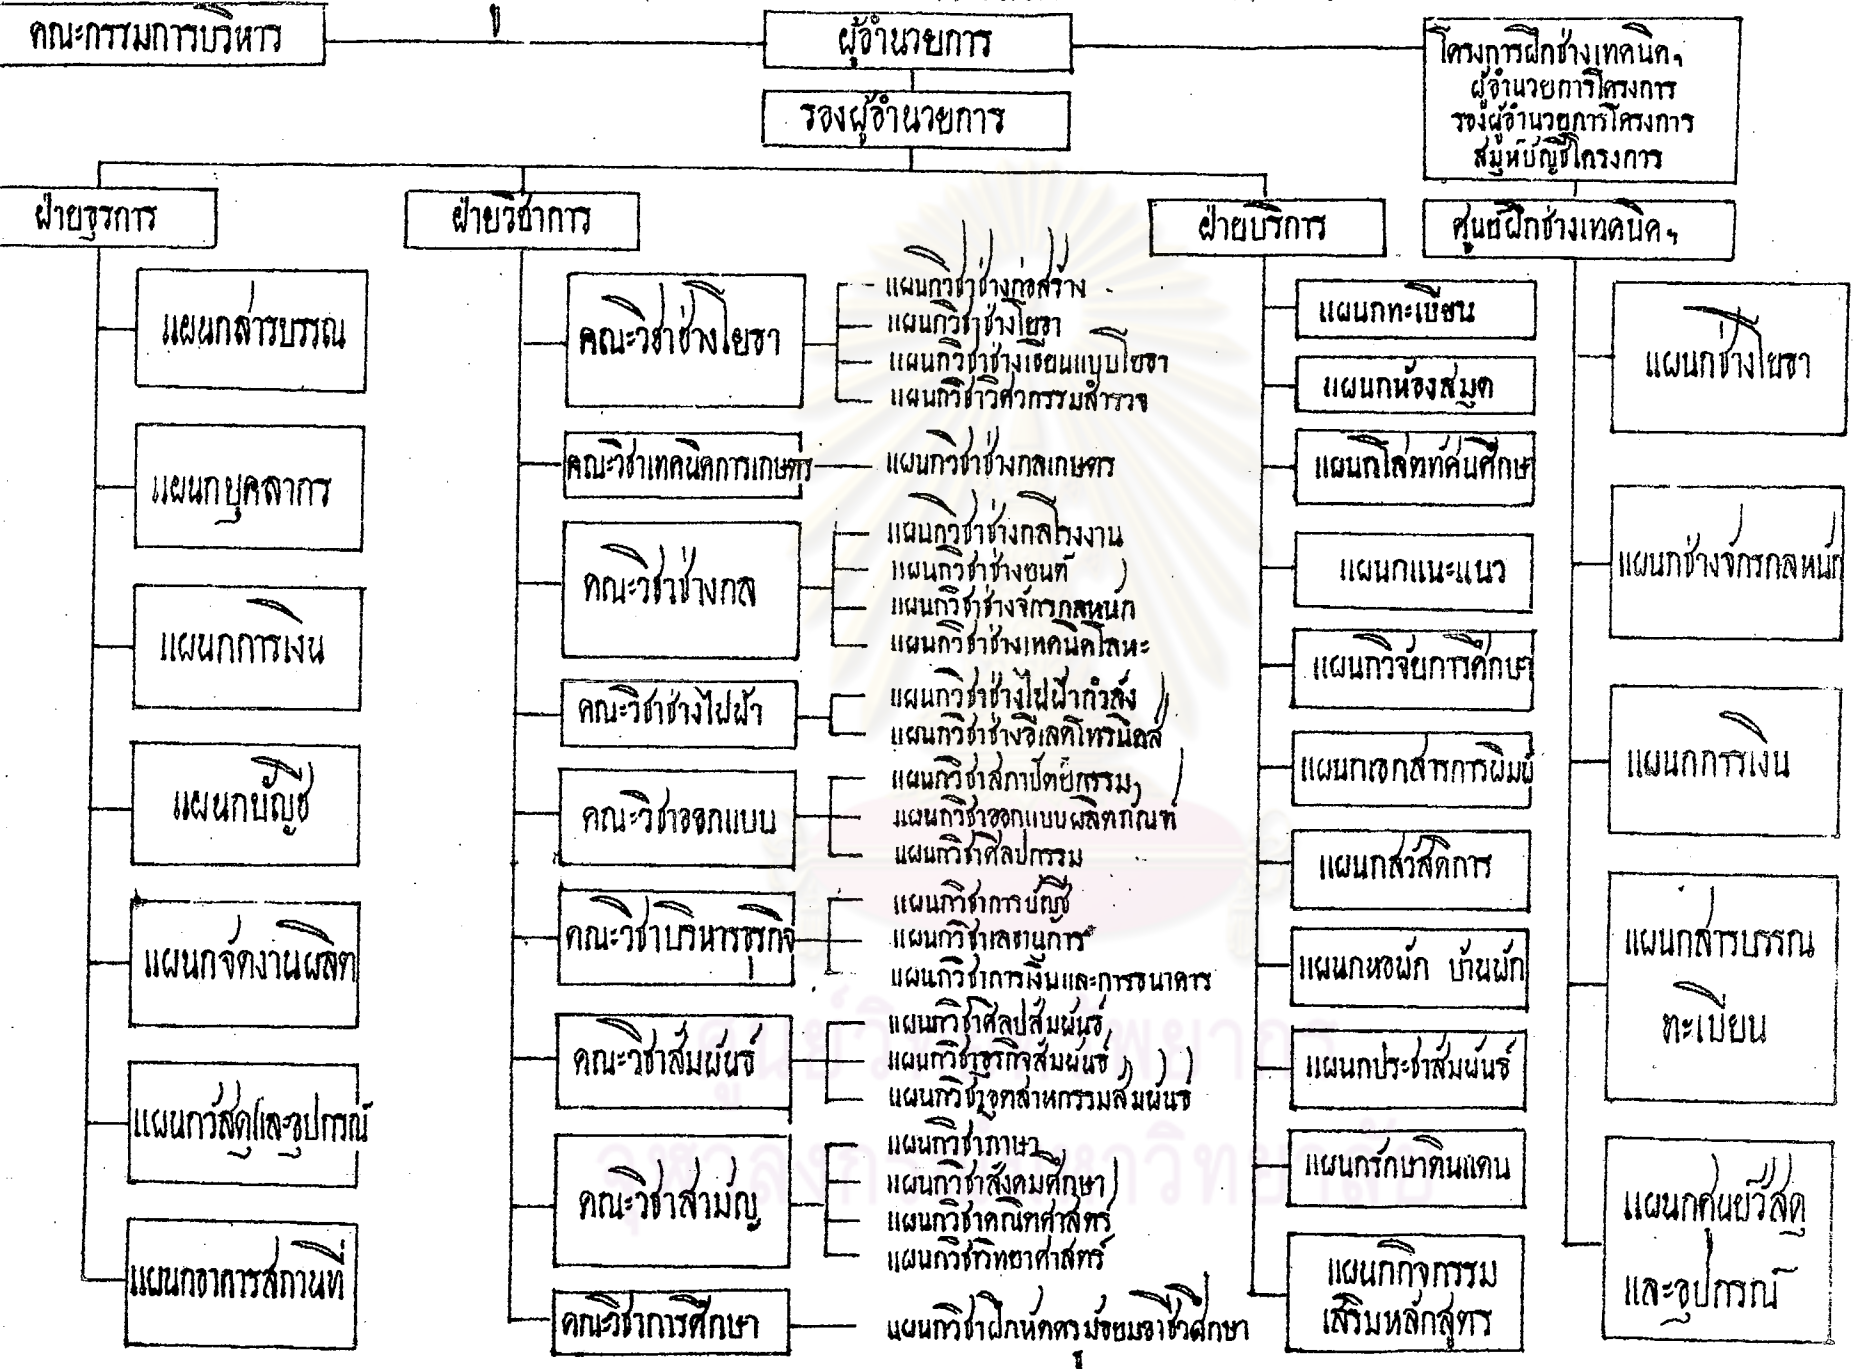 คณะกรรมการบริหาร
ผู้อำนวยการ
โครงการฝึกช่างเทคนิคฯ
ผู้อำนวยการโครงการ
รองผู้อำนวยการโครงการ
สมุห์บัญชีโครงการ
รองผู้อำนวยการ
ฝ่ายธุรการ
ฝ่ายวิชาการ
ฝ่ายบริการ
ศูนย์ฝึกช่างเทคนิคฯ
แผนกสารบรรณ
แผนกบุคลากร
แผนกการเงิน
แผนกบัญชี
แผนกจัดงานผลิต
แผนกวัสดุและอุปกรณ์
แผนกอาคารสถานที่
คณะวิชาช่างโยธา
แผนกวิชาช่างก่อสร้าง
แผนกวิชาช่างโยธา
แผนกวิชาช่างเขียนแบบโยธา
แผนกวิชาวิศวกรรมสำรวจ
คณะวิชาเทคนิคการเกษตร
แผนกวิชาช่างกลเกษตร
คณะวิชาช่างกล
แผนกวิชาช่างกลโรงงาน
แผนกวิชาช่างยนต์
แผนกวิชาช่างจักรกลหนัก
แผนกวิชาช่างเทคนิคโลหะ
คณะวิชาช่างไฟฟ้า
แผนกวิชาช่างไฟฟ้ากำลัง
แผนกวิชาช่างอิเลคโทรนิคส์
คณะวิชาออกแบบ
แผนกวิชาสถาปัตย์กรรม
แผนกวิชาออกแบบผลิตภัณฑ์
แผนกวิชาศิลปกรรม
คณะวิชาบริหารธุรกิจ
แผนกวิชาการบัญชี
แผนกวิชาเลขานุการ
แผนกวิชาการเงินและการธนาคาร
คณะวิชาสัมพันธ์
แผนกวิชาศิลปสัมพันธ์
แผนกวิชาธุรกิจสัมพันธ์
แผนกวิชาอุตสาหกรรมสัมพันธ์
คณะวิชาสามัญ
แผนกวิชาภาษา
แผนกวิชาสังคมศึกษา
แผนกวิชาคณิตศาสตร์
แผนกวิชวิทยาศาสตร์
คณะวิชาการศึกษา
แผนกวิชาฝึกหัดครูมัธยมอาชีวศึกษา
แผนกทะเบียน
แผนกห้องสมุด
แผนกโสตทัศนศึกษา
แผนกแนะแนว
แผนกวิจัยการศึกษา
แผนกเอกสารการพิมพ์
แผนกสวัสดิการ
แผนกหอพัก บ้านพัก
แผนกประชาสัมพันธ์
แผนกรักษาดินแดน
แผนกกิจกรรม
เสริมหลักสูตร
แผนกช่างโยธา
แผนกช่างจักรกลหนัก
แผนกการเงิน
แผนกสารบรรณ
ทะเบียน
แผนกศูนย์วัสดุ
และอุปกรณ์
ศูนย์วิทยทรัพยากร
จุฬาลงกรณ์มหาวิทยาลัย